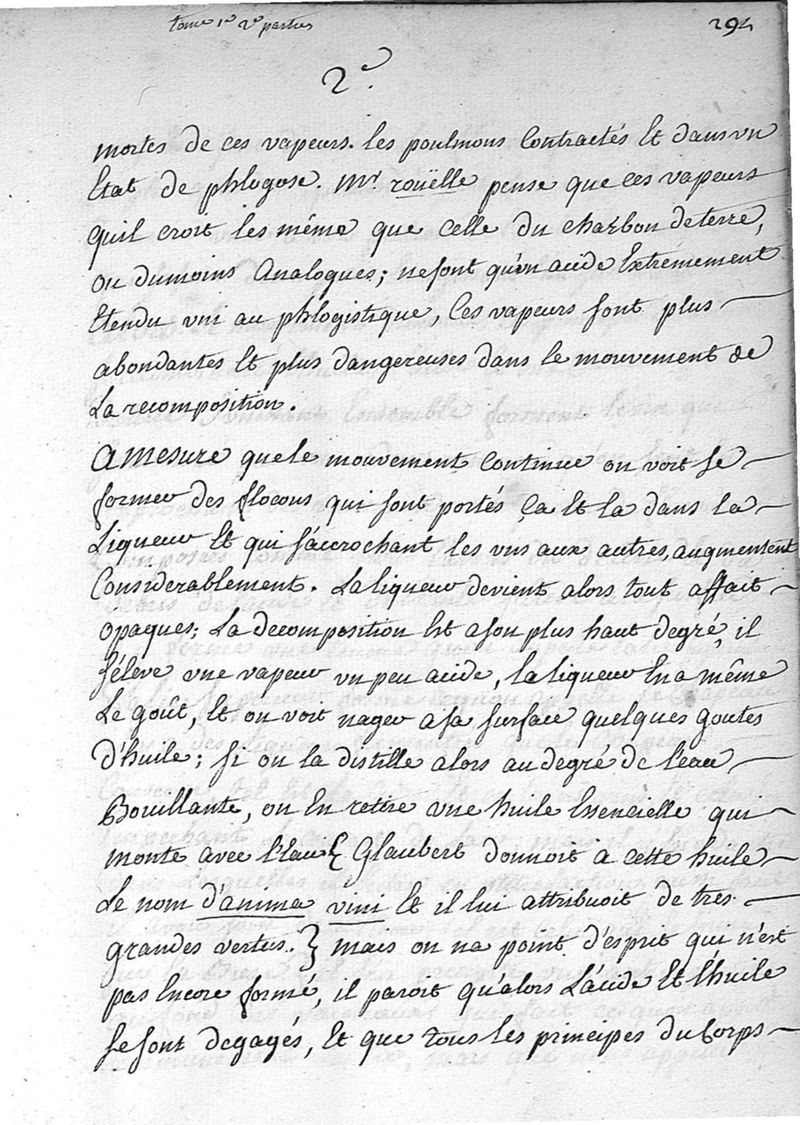 tome 1er 2e partie
294
2e.
mortes de ces vapeurs. les poulmons Contractés Et dans vn
Etat de phlogose. Mr. rouëlle pense que ces vapeurs
quil croit les même que celle du charbon de terre,
ou dumoins Analogues; ne sont qu'un acide Extrémement
Etendu vni au phlogistique, Ces vapeurs sont plus
abondantes Et plus dangereuses dans le mouvement de
La recomposition.
A mesure que le mouvement Continue on voit se
former des flocons qui sont portés ça Et la dans la
Liqueur Et qui s'accrochant les vns aux autres, augmentent
Considerablement. La liqueur devient alors tout affait
opaques; La decomposition Est a son plus haut degré, il
s'éleve vne vapeur vn peu acide, la liqueur En a même
Le goût, Et on voit nager a sa surface quelques goutes
d'huile; si on la distille alors au degré de l'eau
Bouillante, on En retire vne huile Essencielle qui
monte avec l'Eau { Glaubert donnoit a cette huile
Le nom d'anima vini Et il lui attribuoit de tres
grandes vertus. } mais on na point d'esprit qui n'est
pas Encore formé, il paroit qu'alors L'acide Et l'huile
se sont degagés, Et que tous les principes du Corps